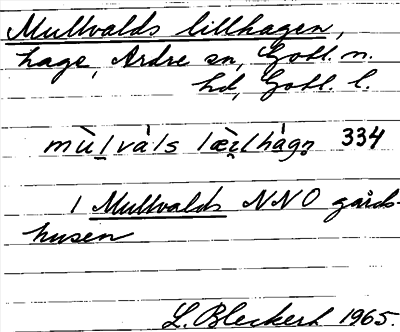 Mullvalds lillhagen,
hage, Ardre sn, Gotl. n.
hd, Gotl. l.
mù̱lvà̀ls læ̀i̯lhàgn̥ 334
1 Mullvalds NNO gårds-
husen
L. Bleckert 1965.